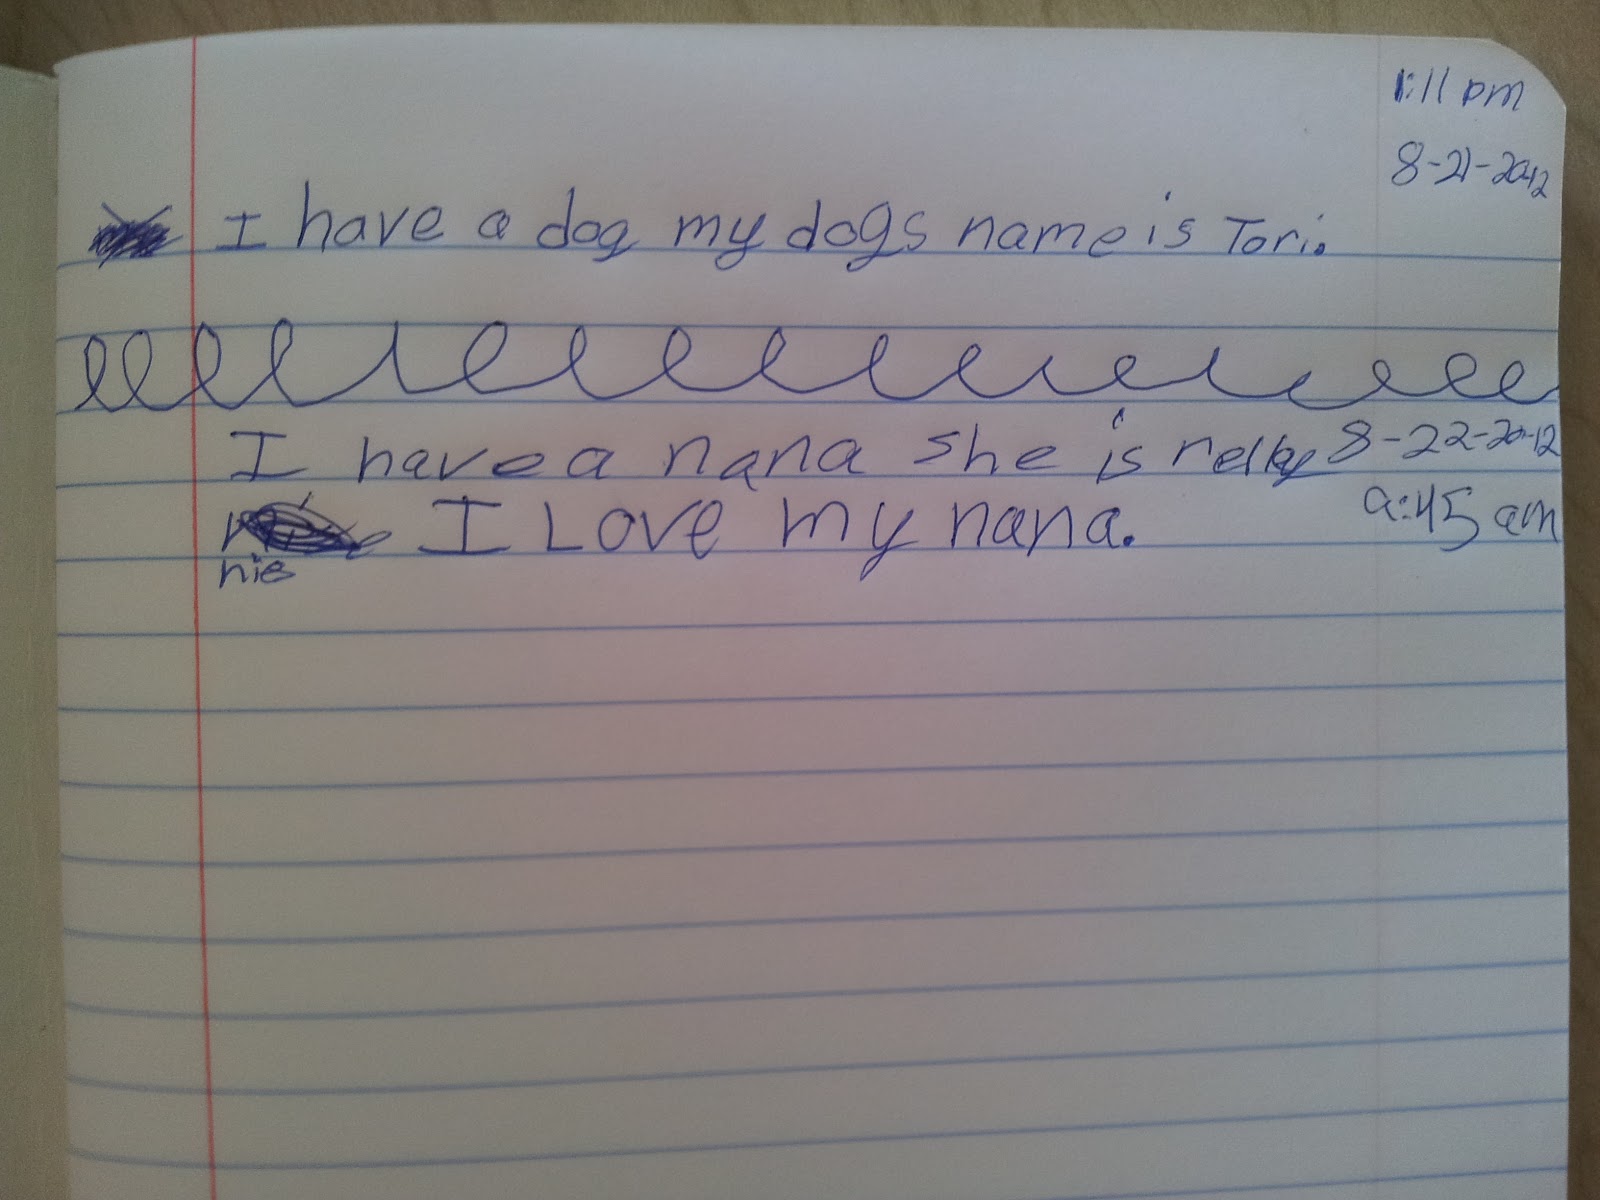 1:11 pm
8-21-2012
I have a dog my dogs name is Tori.
I have a nana she is relley 8-22-2012
I Love my nana. 9:45 am
nis